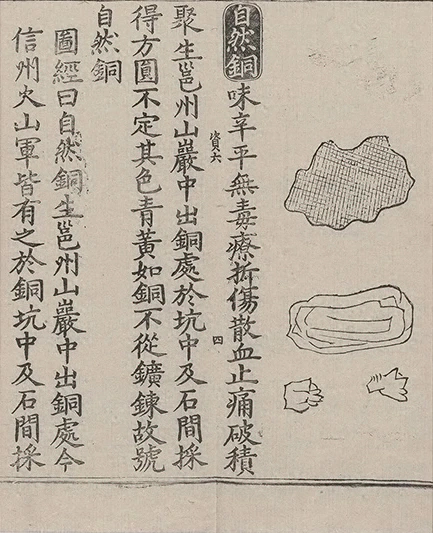 自然銅
味辛平無毒療折傷散血止痛破積
資六
四
聚生邕州山巖中出銅處於坑中及石間採
得方圓不定其色青黃如銅不從鑛鍊故號
自然銅
圖經曰自然銅生邕州山巖中出銅處今
信州火山軍皆有之於銅坑中及石間採